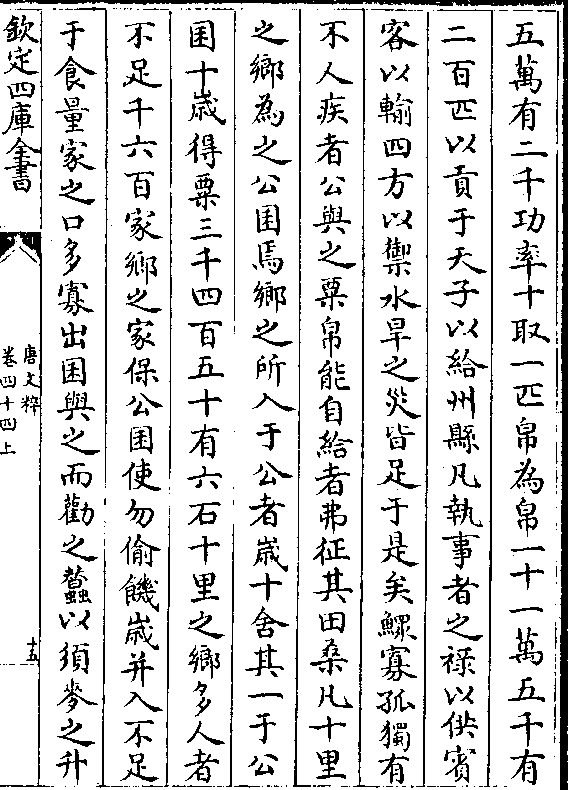 五萬有二千功率十取一匹帛為帛一十一萬五千有
二百匹以貢于天子以給州縣凡執事者之禄以供賓
客以輸四方以禦水旱之災皆足于是矣鰥寡孤獨有
不人疾者公與之粟帛能自給者弗征其田桑凡十里
之鄉為之公囷焉鄉之所入于公者嵗十舍其一于公
囷十嵗得粟三千四百五十有六石十里之鄉多人者
不足千六百家鄉之家保公囷使勿偷饑嵗并入不足
于食量家之口多寡出囷與之而勸之蠶以須麥之升
欽定四庫全書
唐文粹
卷四十四上
十五